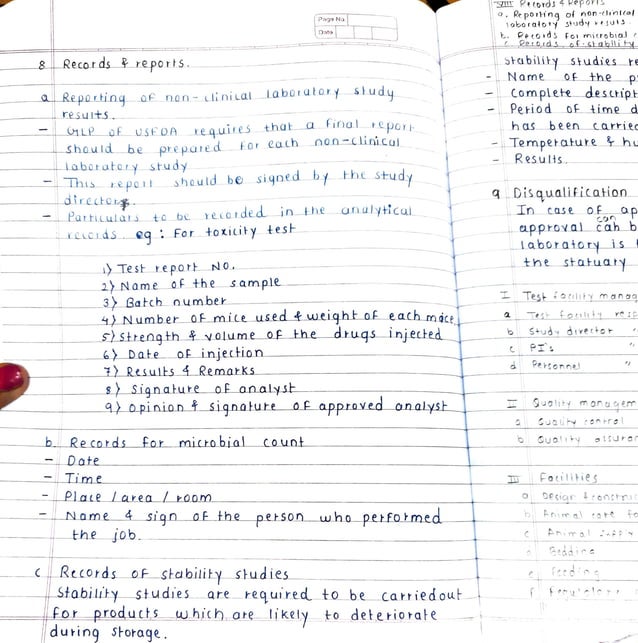 Page No.
Date
8 Records & reports.
a Reporting of non-clinical laboratory study
results.
- GLP of USFDA requires that a final report
should be prepared for each non-clinical
laboratory study
- This report should be signed by the study
director.
- Particulars to be recorded in the analytical
records. eg : For toxicity test
1) Test report No.
2) Name of the sample
3) Batch number
4) Number of mice used & weight of each mice
5) Strength & volume of the drugs injected
6) Date of injection
7) Results & Remarks
8) Signature of analyst
9) opinion & signature of approved analyst
b. Records for microbial count
- Date
- Time
- Place / area / room
- Name & sign of the person who performed
the job.
c Records of stability studies
Stability studies are required to be carriedout
for products which are likely to deteriorate
during storage.
VIII Records & Reports
a. Reporting of non-clinical
laboratory study results.
b. Records for microbial
c. Records of stability
Stability studies re
- Name of the p
- Complete descript
- Period of time d
has been carried
- Temperature & hu
- Results.
9 Disqualification
In case of ap
approval can b
laboratory is
the statuary
I Test facility manag
a Test facility resp
b Study director "
c PI's "
d Personnel "
II Quality managem
a Quality control
b Quality assuran
III Facilities
a Design & constric
b Animal care fa
c Animal supply
d Bedding
e feeding
f